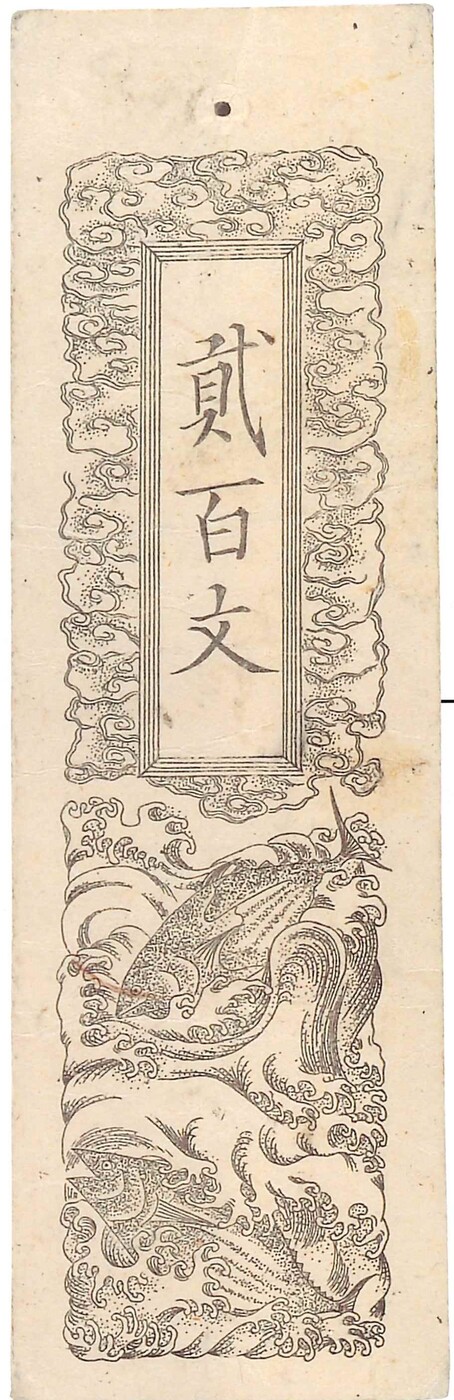 貳百文